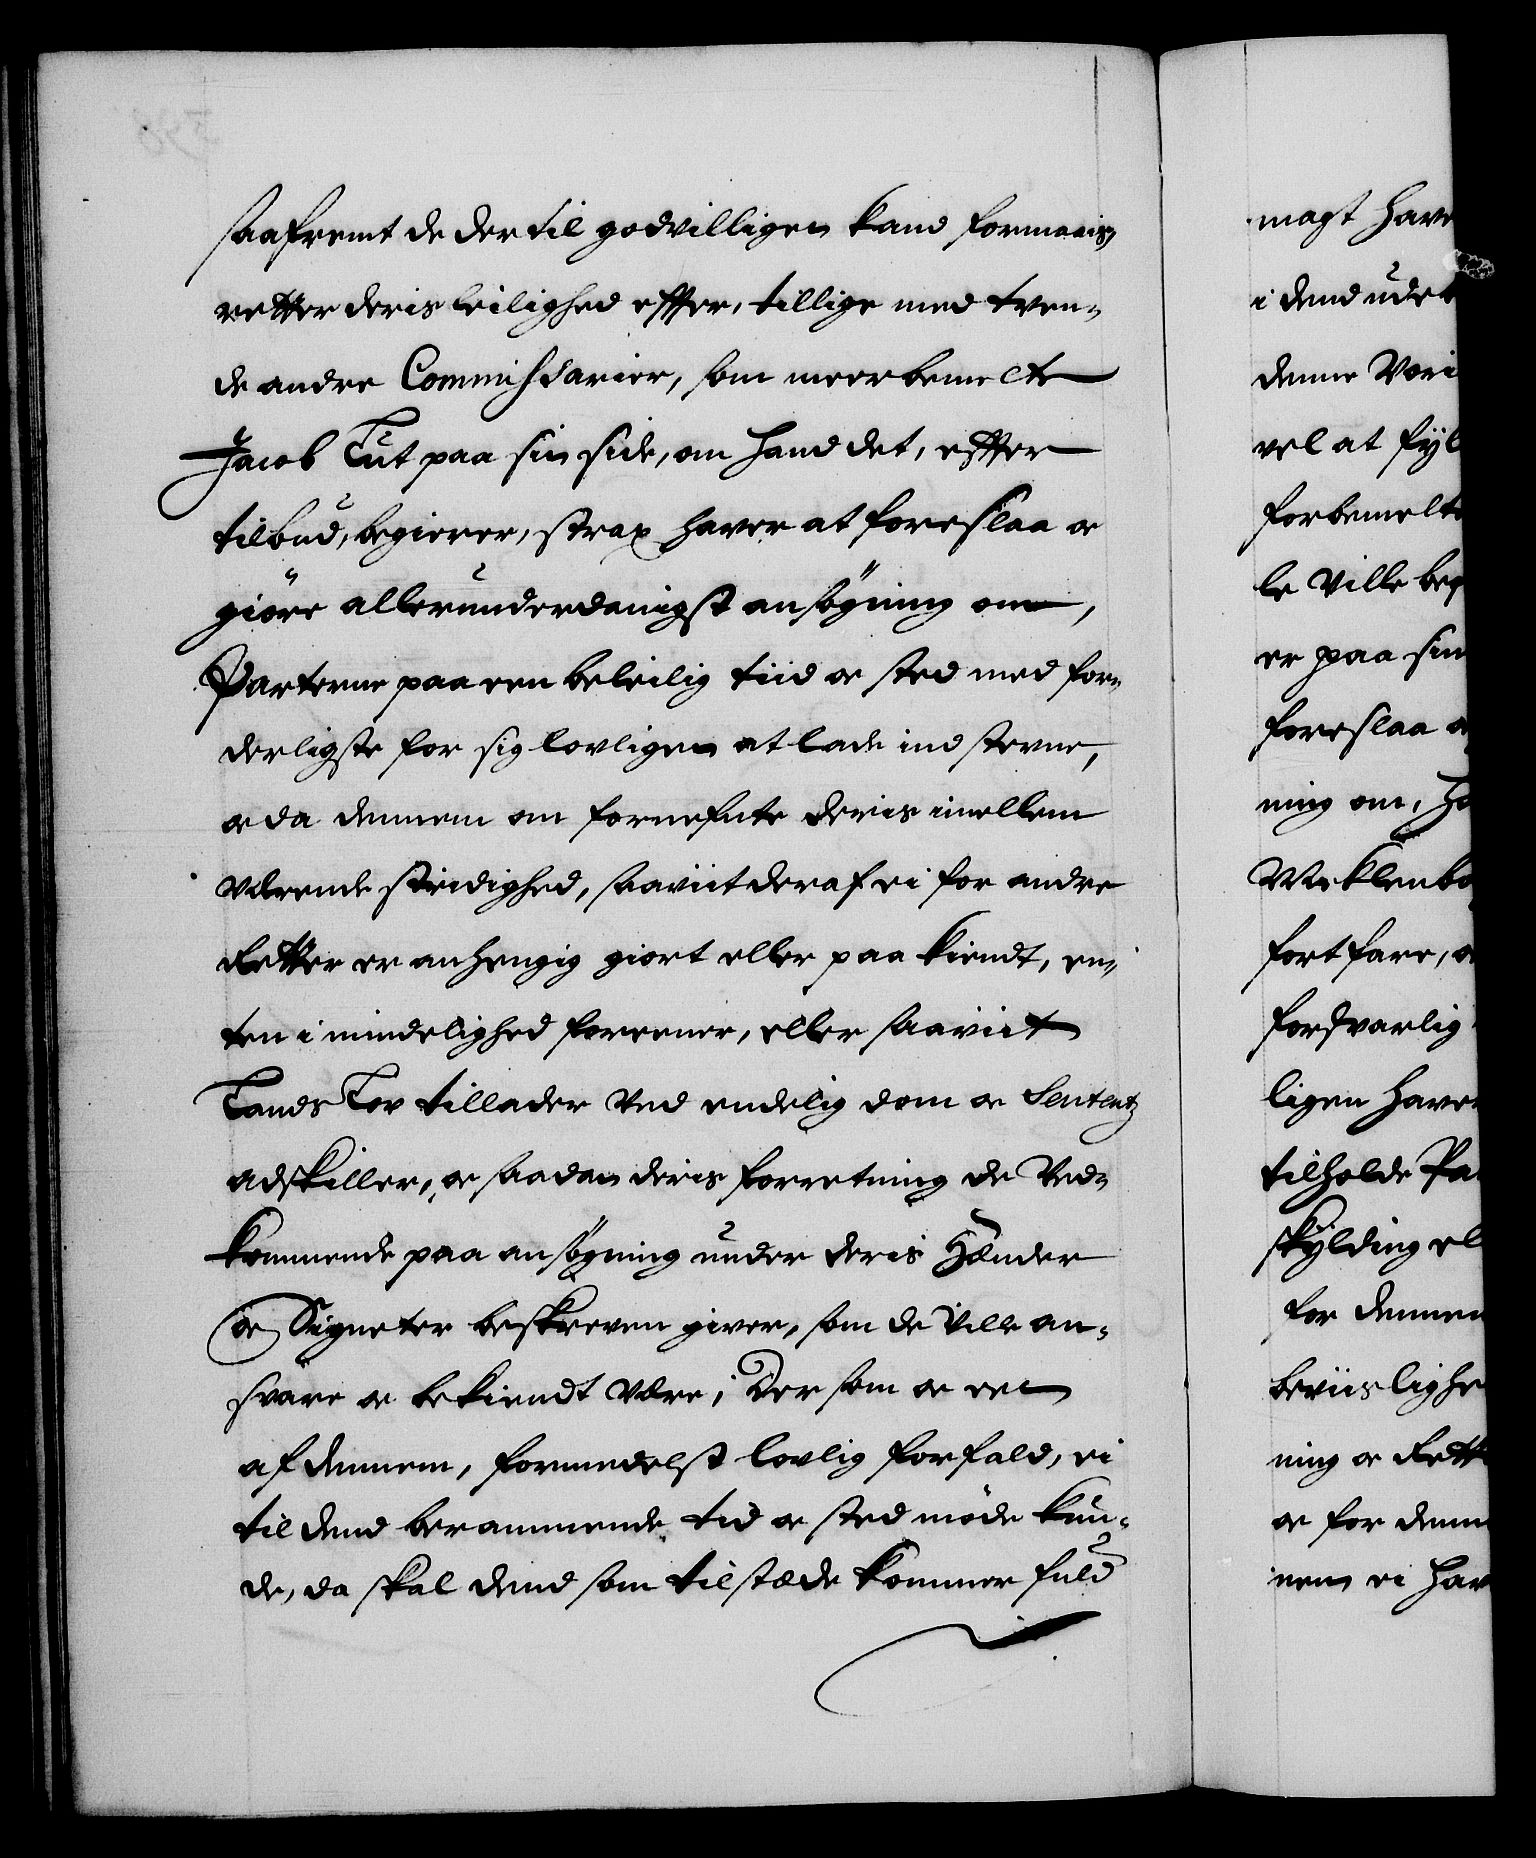 saafremt de dertil godvilligen kand formaais,
retter deris leilighed effter, tillige med tven-
de andre Commissarier, som meerbemelte
Jacob Lut paa sin side, om hand det, effter
tilbud, begierer, strax haver at foreslaa oc
giöre allerunderdanigst ansögning om,
Parterne paa een beleilig tiid oc sted med for-
derligste for sig lovligen at lade ind stevne,
oc da dennem om fornefnte deris imellem
værende stridighed, saaviit deraf ei for andre
Retter er anhengig giort eller paa kiendt, en-
ten i mindelighed foreener, eller saaviit
Lands Lov tillader ved endelig dom oc Sententz
adskiller, oc saadan deris forretning de Ved-
kommende paa ansögning under deris Hænder
oc Signeter beskreven giver, som de ville an-
svare oc bekiendt være; Dersom oc een
af dennem, formedelst lovlig forfald, ei
til dend berammende tid oc sted möde kun-
de, da skal dend som tilstæde kommer fuld
magt have
i dend udet
denne Vori
vel at fyl
forbemelte
le Ville beg
er paa sin
foreslaa o
ning om, H
Meklenbo
fortfare, o
forsvarlig
ligen have
tilholde Pa
skylding el
for dennem
beviislighe
ning oc Rett
oc for denn
nem ei hav